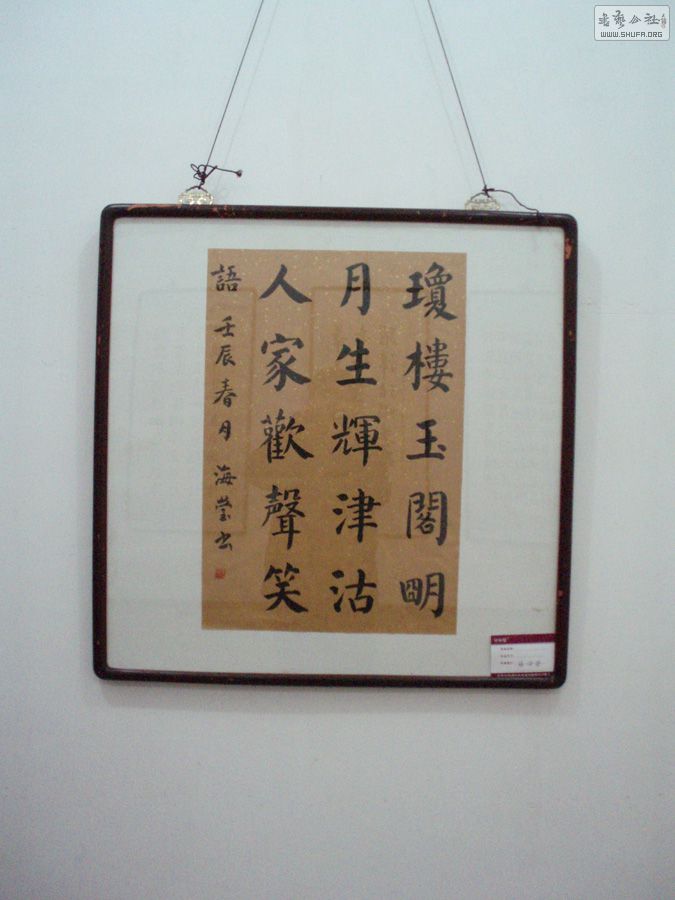 瓊樓玉閣明
月生輝津沽
人家歡聲笑
語 壬辰春月 海瑩书
书艺公社
WWW.SHUFA.ORG